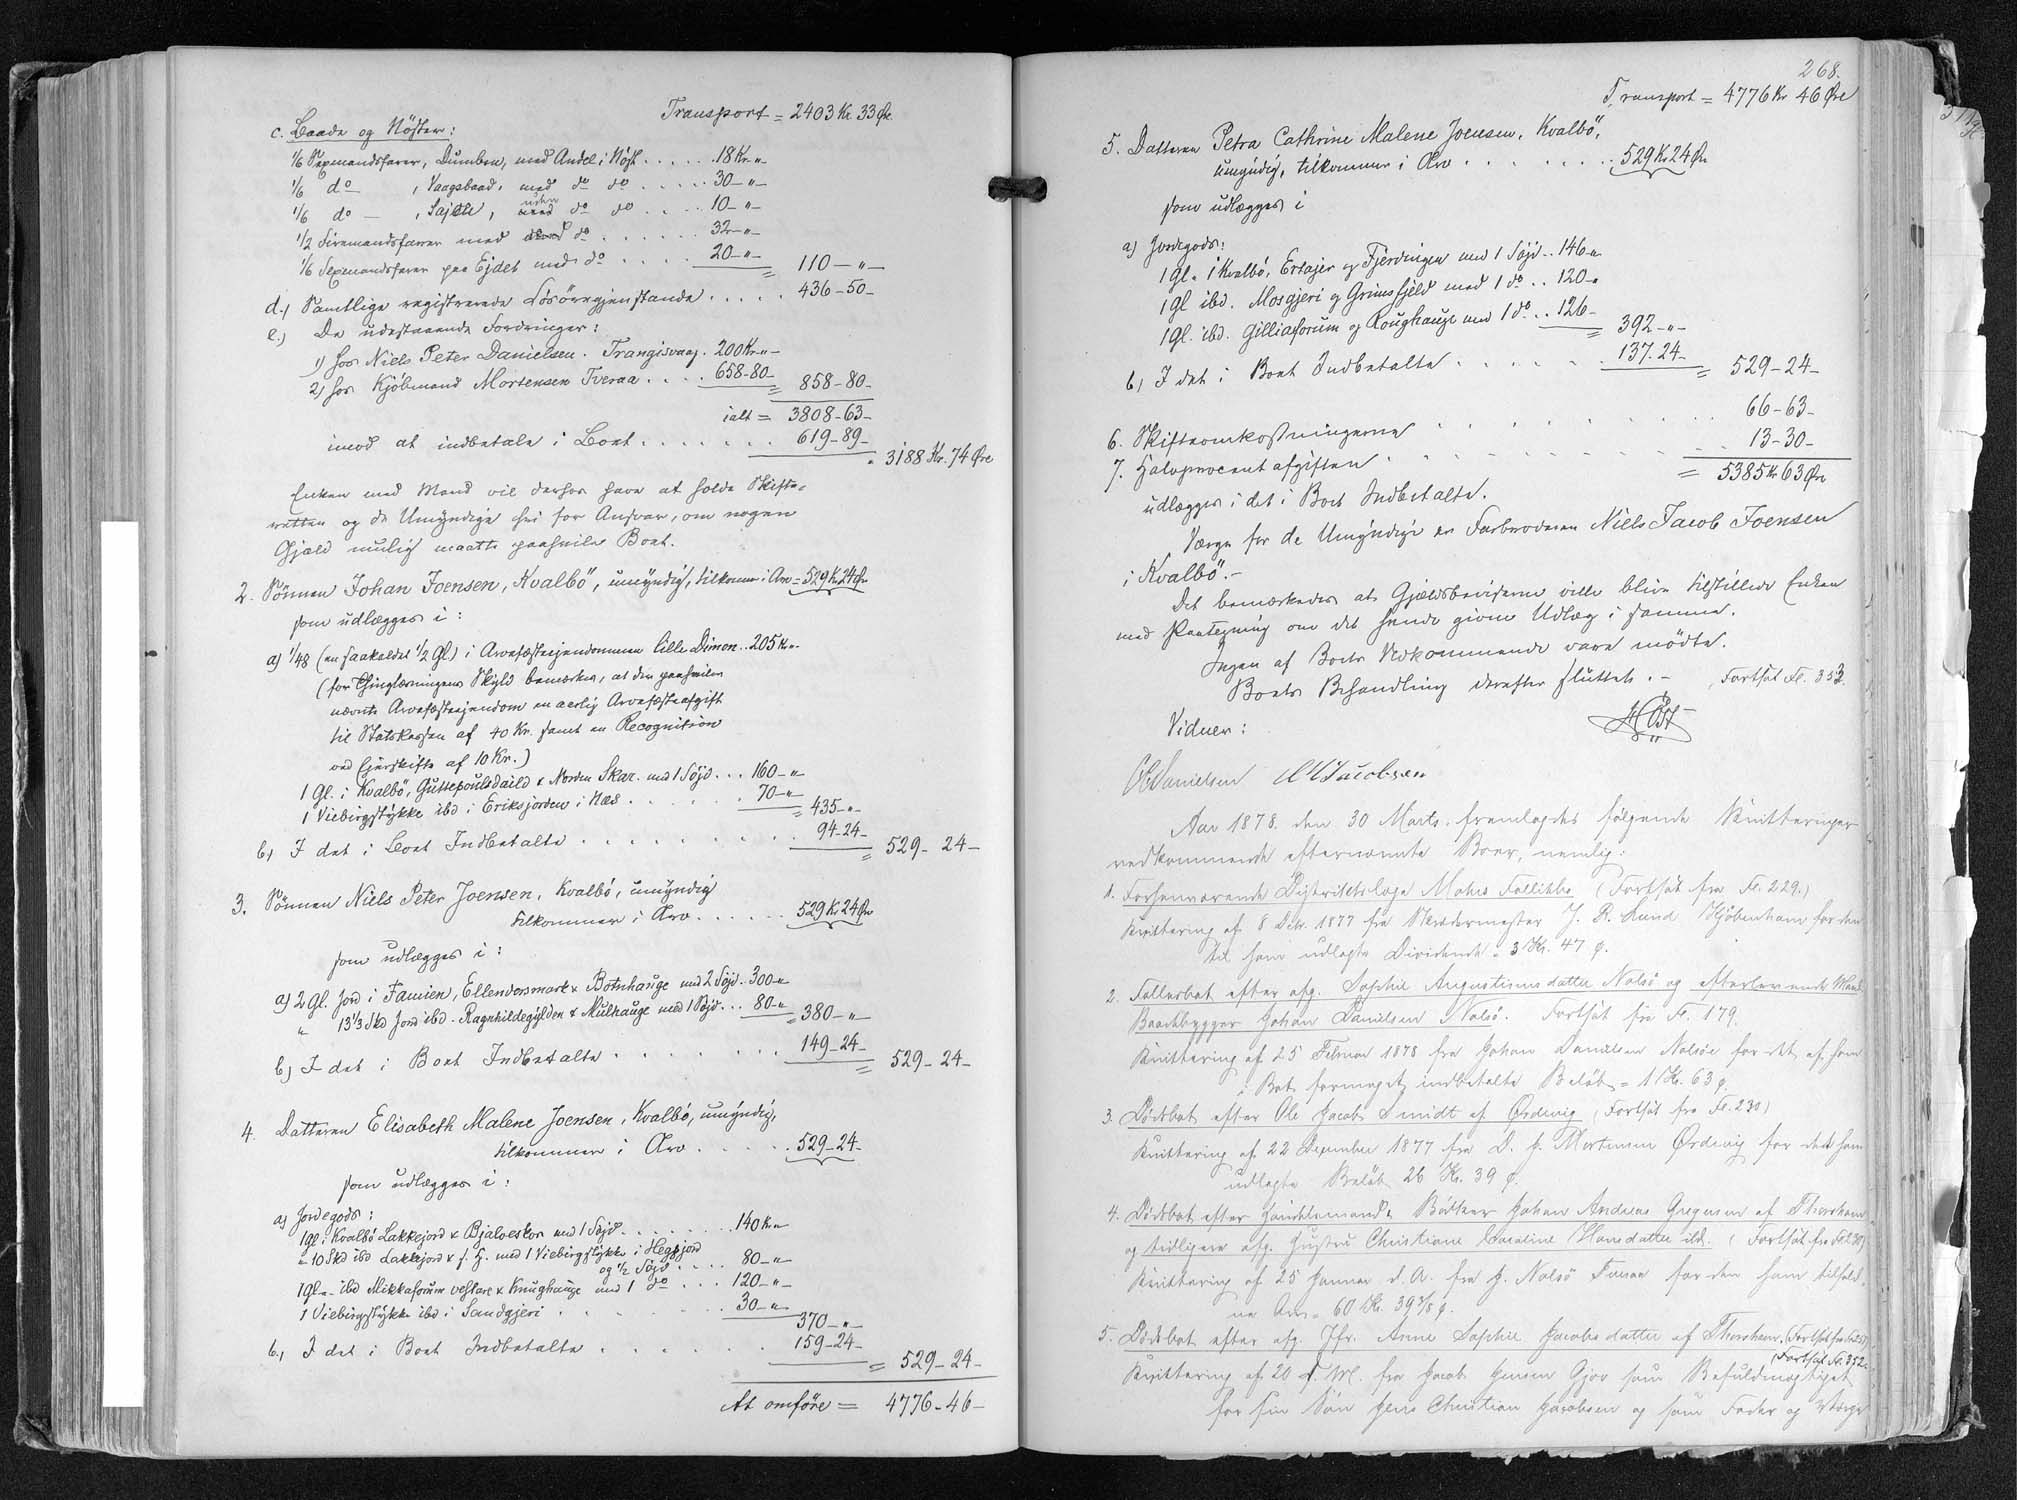 Transport = 2403 Kr. 33 Øre
c. Baade og Nøster:
1/6 Sexmandsfarer, Dumben, med Andel i Nøst . . . . . 18 Kr. "
1/6 do , Vaagsbaad, med do do . . . . . 30 - " -
1/6 do - , Sajdli, uden do do . . . . 10 - " -
1/2 Firemandsfarer med do . . . . . . 32 - " -
1/6 Sexmandsfarer paa Ejdet med do . . . . 20 - " - = 110 - " -
d.) Samtlige registrerede Løsøregjenstande . . . . . 436 - 50 -
e.) De udestaaende Fordringer:
1) hos Niels Peter Danielsen. Trangisvaag. 200 Kr. " -
2) hos Kjøbmand Mortensen Tveraa . . . . 658 - 80 - = 858 - 80 -
ialt = 3808 - 63 -
imod at indbetale i Boet . . . . . . . 619 - 89 -
" 3188 Kr. 74 Øre
Enken med Mand vil derhos have at holde Skifte-
retten og de Umyndige fri for Ansvar, om nogen
Gjæld mulig maatte paahvile Boet.
2. Sønnen Johan Joensen, Kvalbö, umyndig, tilkommer i Arv = 529 Kr 24 Øre
som udlægges i :
a) 1/48 (en saakaldet 1/2 Gl.) i Arvefæsteejendommen lille Dimon . . 205 Kr. "
(for Thinglæsningens Skyld bemærkes, at der paahviler
nævnte Arvefæsteejendom en aarlig Arvefæsteafgift
til Statskassen af 40 Kr. samt en Recognition
ved Ejerskifte af 10 Kr.)
1 Gl. i Kvalbö, Guttepoulsdaild & Norden Skar. med 1 Söjd . . . 160 - "
1 Viebirgstykke ibd i Eriksjorden i Næs . . . . . . . 70 - " = 435 - " -
b) I det i Boet Indbetalte . . . . . . . . . 94 - 24 - = 529 - 24 -
3. Sønnen Niels Peter Joensen, Kvalbö, umyndig
tilkommer i Arv . . . . . . 529 Kr 24 Øre
som udlægges i :
a) 2 Gl. Jord i Famien, Ellendersmark & Botnhauge med 2 Söjd . 300 - "
" 13 1/3 Skd Jord ibd. Ragnhildegylden & Mulhauge med 1 Söjd . . . 80 - " = 380 - " -
b) I det i Boet Indbetalte . . . . . . . 149 - 24 - = 529 - 24 -
4. Datteren Elisabeth Malene Joensen, Kvalbö, umyndig,
tilkommer i Arv . . . . . 529 - 24 -
som udlægges i :
a) Jordegods :
1 Gl i Kvalbö Lakkejord & Bjalveskor med 1 Söjd . . . . . . . 140 Kr "
" 10 Skd ibd Lakkejord & f. H. med 1 Viebirgstykke i Heggjord
og 1/2 Söjd . . . . 80 - " -
1 Gl " - ibd Mikkaforum vestare & Knughauge med 1 do . . . 120 - " -
1 Viebirgstykke ibd i Sandgjeri . . . . . . . 30 - " -
370 - " -
b.) I det i Boet Indbetalte . . . . . . . 159 - 24 -
= 529 - 24 -
At omføre = 4776 - 46 -
268.
Transport = 4776 Kr 46 Øre
5. Datteren Petra Cathrine Malene Joensen, Kvalbö,
umyndig, tilkommer i Arv . . . . . . . 529 Kr 24 Øre
som udlægges i
a) Jordegods:
1 Gl. i Kvalbö, Ertajer og Fjerdingen med 1 Söjd . . 146 - "
1 Gl ibd. Mosgjeri og Grimsfjeld med 1 do . . 120 - "
1 Gl. ibd. Gilliaforum og Roughauge med 1 do . . 126 - = 392 - " -
b) I det i Boet Indbetalte . . . . . . 137. 24 - = 529 - 24 -
6. Skifteomkostningerne . . . . . . . . 66 - 63 -
7. Halvprocentafgiften . . . . . . . . . 13 - 30 -
= 5385 Kr 63 Øre
udlægges i det i Boet Indbetalte.
Værge for de Umyndige er Farbroderen Niels Jacob Joensen
i Kvalbö. -
Det bemærkedes at Gjældsbeviserne ville blive tilstillede Enken
med Paategning om det hende givne Udlæg i samme.
Ingen af Boets Vedkommende vare mødte.
Boets Behandling derefter sluttet. - Fortsat Fl. 353.
HØst
Vidner:
Danielsen Jacobsen
Aar 1878. den 30 Marts. fremlagdes følgende Kvitteringer
vedkommende efternævnte Boer, nemlig:
1. Forhenværende Districtslæge (Fortsat fra Fl. 229.)
Kvittering af 8 Decbr. 1877 fra Skrædermester J. R. Lund Kjöbenhavn for den
til ham udlagte Dividende = 3 Kr. 47 ø.
2. Fællesboet efter afg. Sophie Augustinusdatter Nolsö og efterlevende Mand
Baadebygger Johan Danielsen Nolsö. Fortsat fra Fl. 179.
Kvittering af 25 Februar 1878 fra Johan Danielsen Nolsöe for det af ham
i Boet formeget indbetalte Beløb = 1 Kr. 63 ø.
3. Dødsboet efter Ole Jacob Smidt af Ørdevig (Fortsat fra Fl. 230)
Kvittering af 22 December 1877 fra D. J. Mortensen Ørdevig for det ham
udlagte Beløb 26 Kr. 39 ø.
4. Dødsboet efter Bödker Johan Andreas Gregersen af Thorshavn
og tidligere afg. Hustru Christiane Caroline Hansdatter ibd. (Fortsat fra Fl. 230)
Kvittering af 25 Januar d. A. fra J. Nolsö for den ham tilfald-
ne Arv = 60 Kr. 39 3/8 ø.
5. Dødsboet efter afg. Jfr. Anne Sophie Jacobsdatter af Thorshavn. (Fortsat fra Fl 257)
(Fortsat Fl. 352.
Kvittering af 20 d. M. fra Jacob Jensen Gjov som Befuldmægtiget
for sin Søn Jens Christian Jacobsen og som Fader og Værge